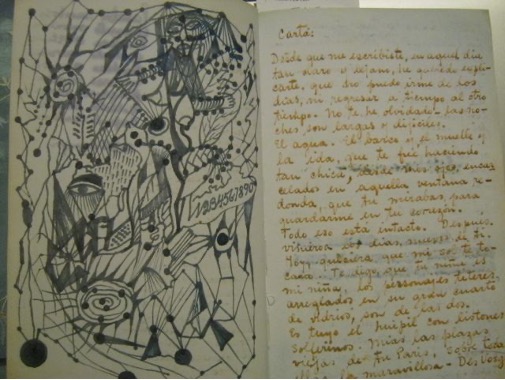 1234567890
Carta:
Desde que me escribiste, en aquel día
tan claro y lejano, he querido expli-
carte, que no puedo irme de los
días, ni regresar a tiempo al otro
tiempo. No te he olvidado - las no-
ches son largas y difíciles.
El agua. El barco y el muelle y
la ida, que te fué haciendo
tan chica, desde mis ojos, encar-
celados en aquella ventana re-
donda, que tu mirabas para
guardarme en tu corazón.
Todo eso está intacto. Después,
vinieron los días, nuevos de ti.
Hoy, quisiera que mi sol te to-
cara. Te digo, que tu niña es
mi niña, los personajes títeres
arreglados en su gran cuarto
de vidrios, son de las dos.
Es tuyo el huipil con listones
solferinos. Mías las plazas
viejas de tu París, sobre todas
ellas, la maravillosa - Des Vosg